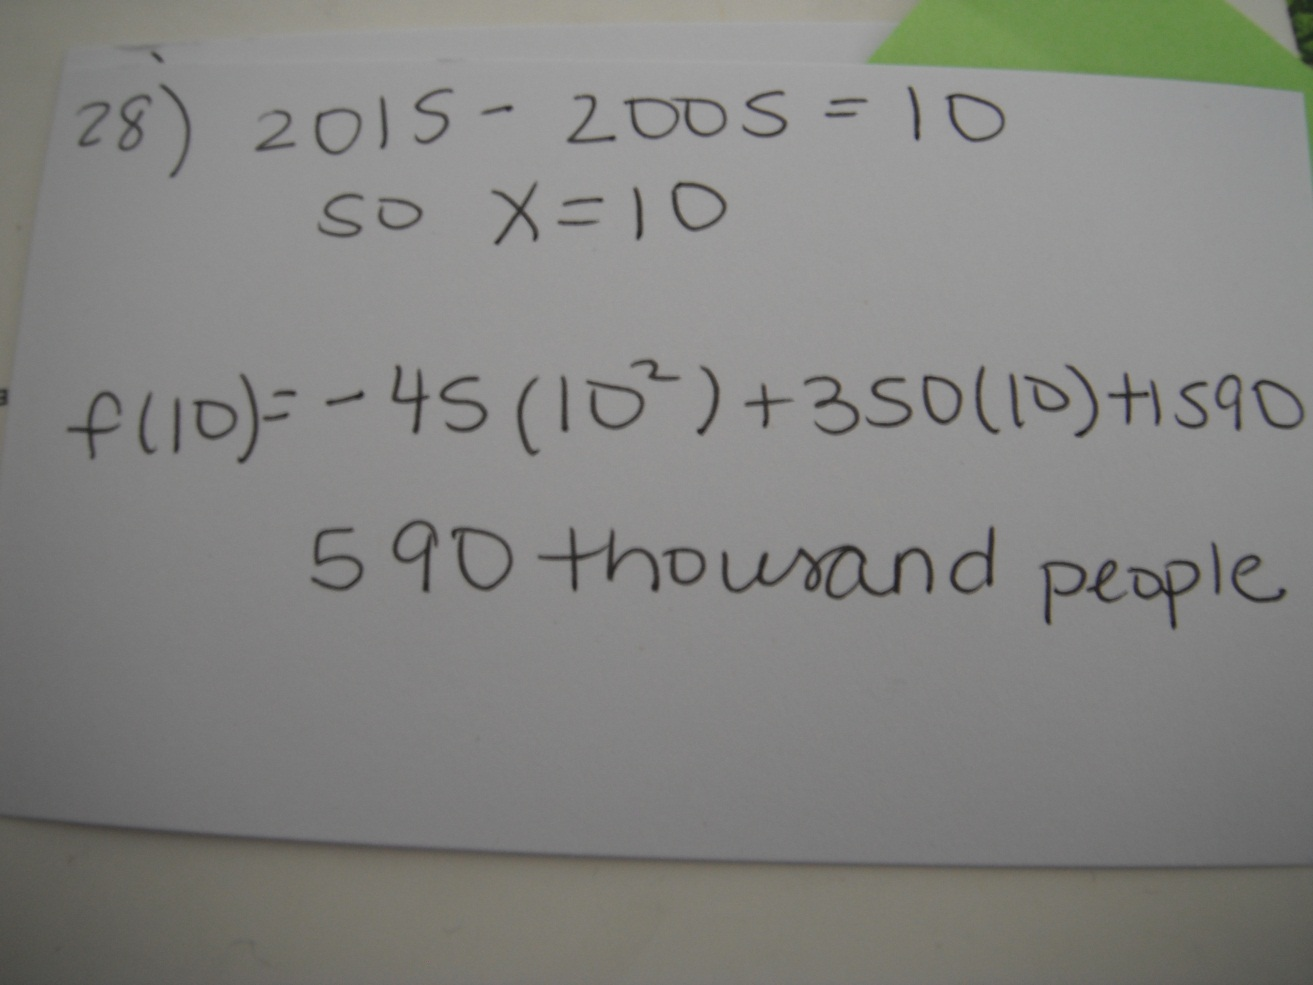 28) 2015 - 2005 = 10
so x = 10
f(10) = -45(10²) + 350(10) + 1590
590 thousand people